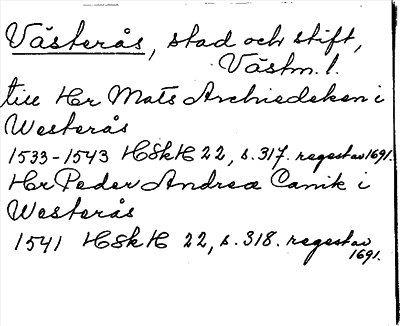 Västerås, stad och stift,
Västm. l.
till Hr Mats Archiedeken i
Westerås
1533-1543 HSkH 22, s. 317. regest av 1691.
Hr Peder Andreæ Canik i
Westerås
1541 HSkH 22, s. 318. regest av
1691.